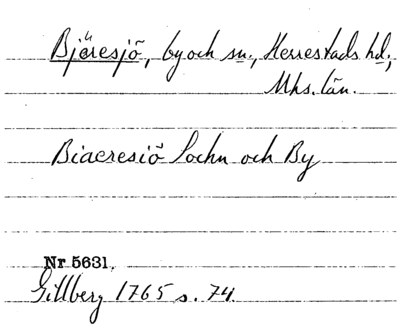 Bjäresjö, by och sn., Herrestads hd.,
Mhs. län.
Biaeresiö Sochn och By
Nr 5631,
Gillberg 1765 s. 74.